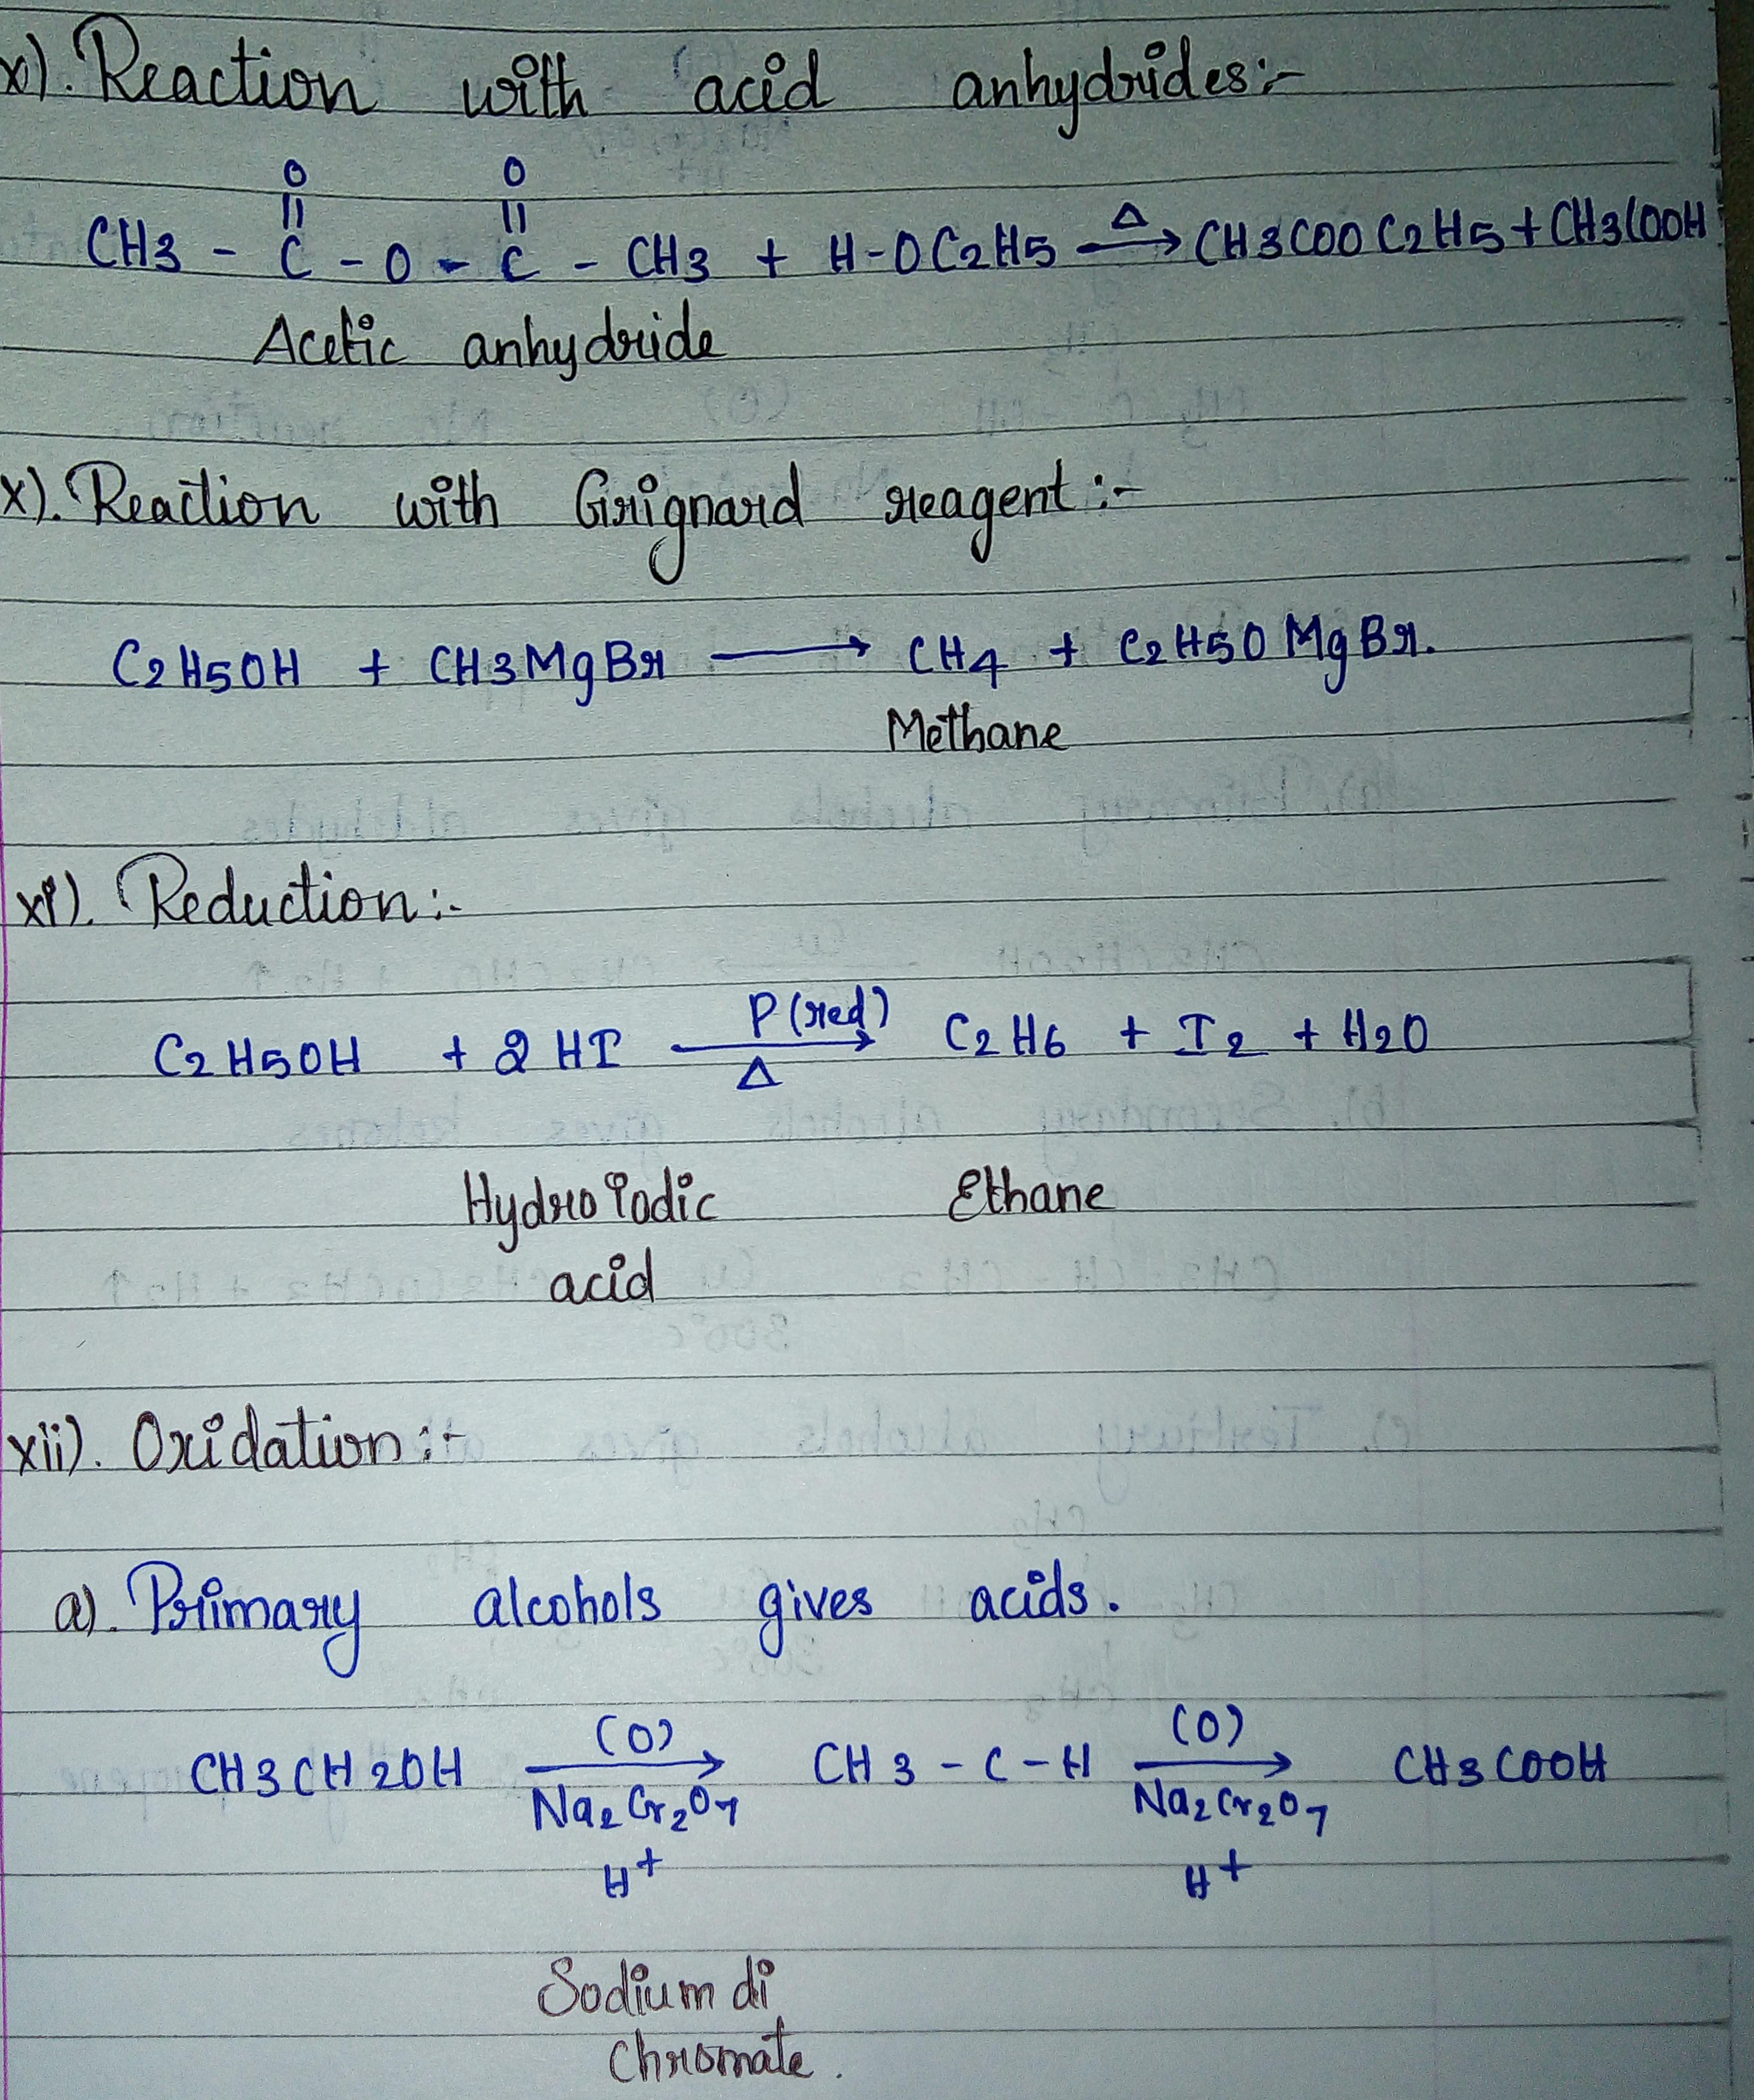 x). Reaction with acid anhydrides:-
O O
|| ||
CH3 - C - O - C - CH3 + H-OC2H5 —Δ→ CH3COOC2H5 + CH3COOH
Acetic anhydride
x). Reaction with Grignard reagent :-
C2H5OH + CH3MgBr ⟶ CH4 + C2H5OMgBr.
Methane
xi). Reduction :-
P(red)
C2H5OH + 2HI ⟶ C2H6 + I2 + H2O
Δ
Hydro iodic Ethane
acid
xii). Oxidation :-
a). Primary alcohols gives acids.
(O) (O)
CH3CH2OH ⟶ CH3 - C - H ⟶ CH3COOH
Na2Cr2O7 Na2Cr2O7
H+ H+
Sodium di
Chromate.